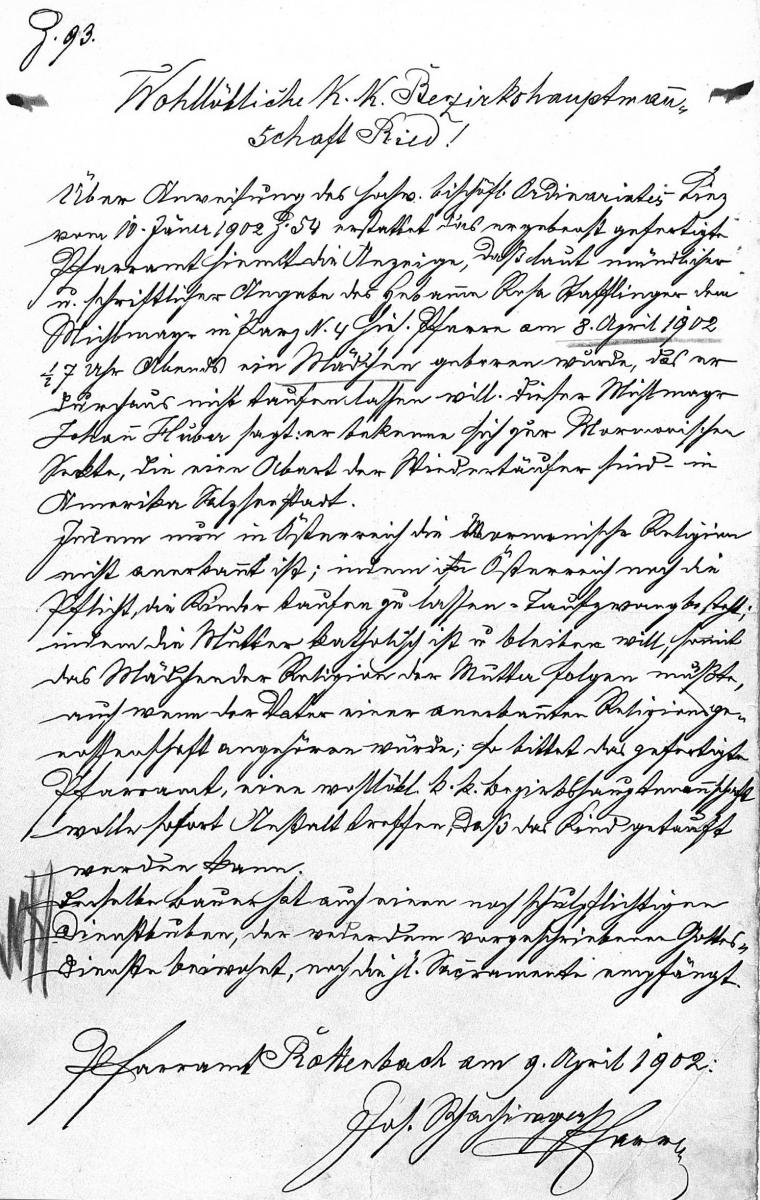 Z. 93.
Wohllöbliche K. K. Bezirkshauptmañ-
schaft Ried!
Über Anweisung des hochw. bischöfl. Ordinariates Linz
vom 10. Jäner 1902 Z. 54 erstattet das ergebenst gefertigte
Pfarramt hiemit die Anzeige, daß laut mündlicher
u. schriftlicher Angabe der Hebam̄e Rosa Stafflinger dem
Michlmayr in Parz N. 4 hies. Pfarre am 8. April 1902
½7 Uhr Abends ein Mädchen geboren wurde, das er
durchaus nicht taufen lassen will. Dieser Michlmayr
Johañ Huber sagt: er bekenne sich zur Mormonischen
Sekte, die eine Abart der Wiedertäufer sind - in
Amerika Salzseestadt.
Indem nun in Österreich die Mormonische Religion
nicht anerkañt ist; indem in Österreich noch die
Pflicht, die Kinder taufen zu lassen - Taufzwang besteht;
indem die Mutter katholisch ist u bleiben will, somit
das Mädchen der Religion der Mutter folgen müßte,
auch wenn der Vater einer anerkañten Religionsge-
nossenschaft angehören würde; so bittet das gefertigte
Pfarramt, eine wohllöbl. k. k. Bezirkshauptmañschaft
wolle sofort Anstalt treffen, daß das Kind getauft
werden kann.
Derselbe Bauer hat auch einen noch schulpflichtigen
Dienstbuben, der weder dem vorgeschriebenen Gottes-
dienste beiwohnt, noch die hl. Sacramente empfängt.
Pfarramt Rottenbach am 9. April 1902:
Jos. Schachinger
Pfarrer